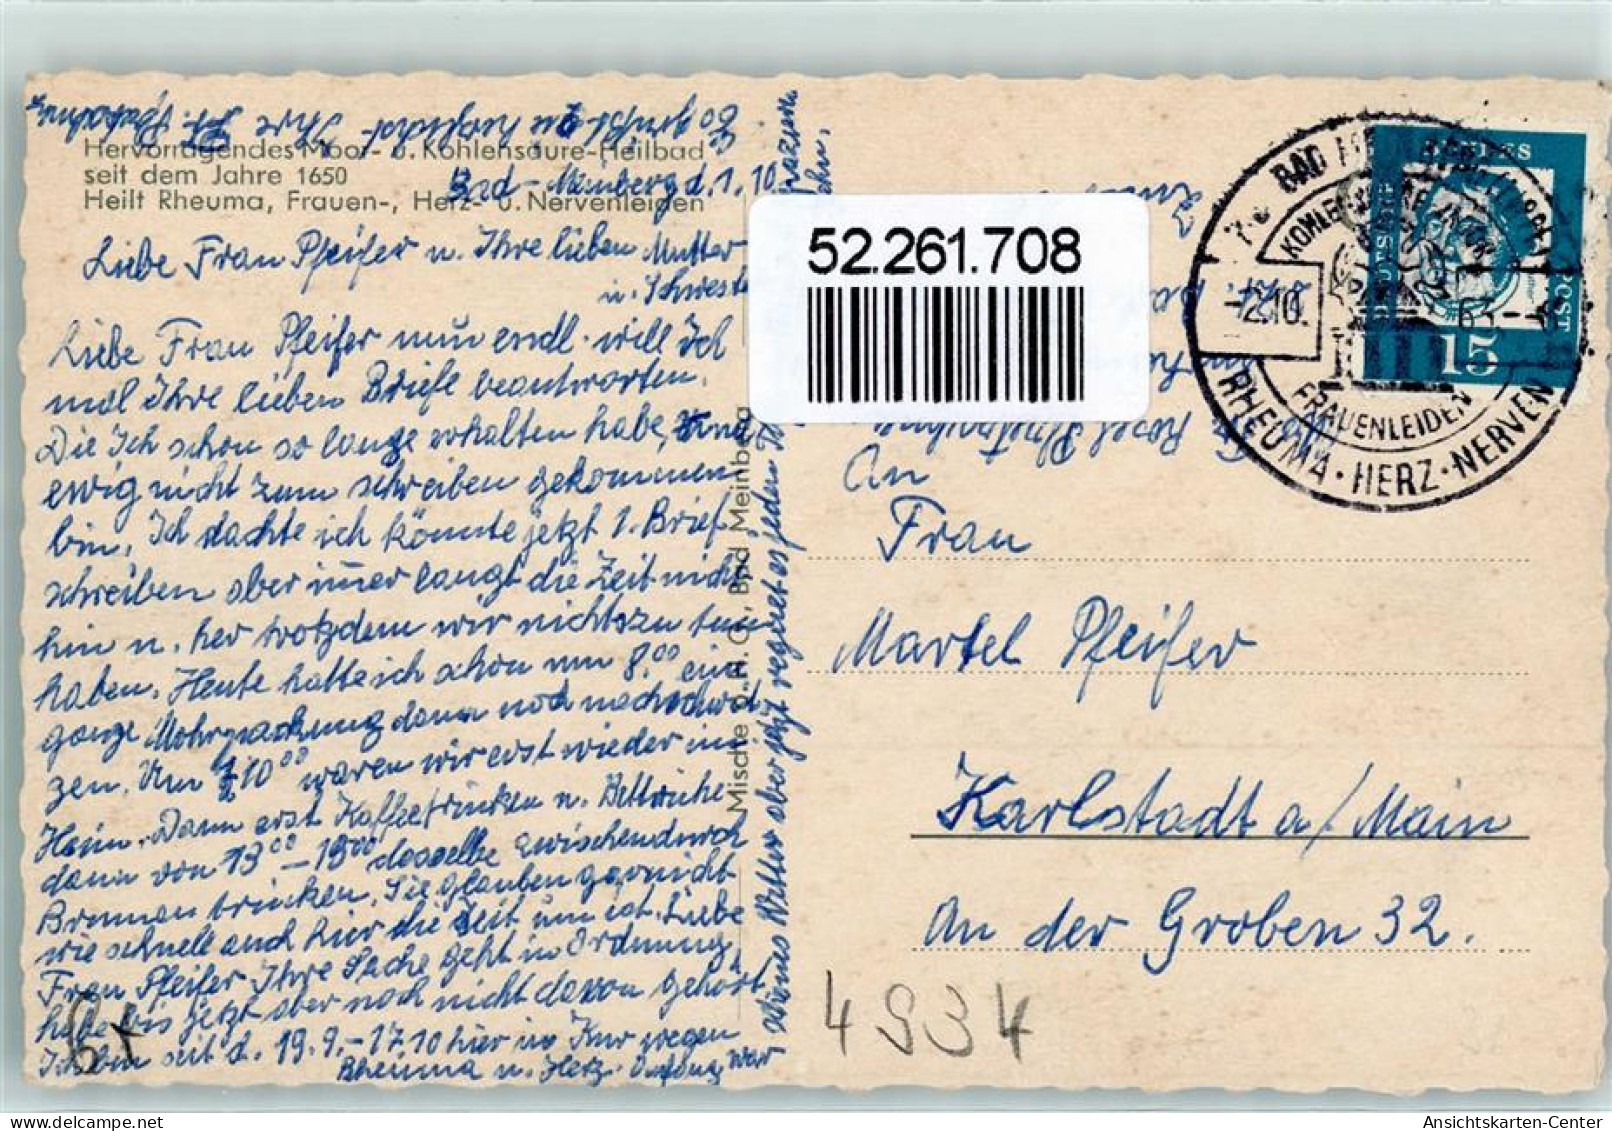 Hervorragendes Moor- u. Kohlensäure-Heilbad
seit dem Jahre 1650
Heilt Rheuma, Frauen-, Herz- u. Nervenleiden
Bad-Meinberg d. 1.10.
Liebe Frau Pfeifer u. Ihre lieben Mutter
u. Schwester
Liebe Frau Pfeifer nun endl. will Ich
mal Ihre lieben Briefe beantworten.
Die Ich schon so lange erhalten habe, und
ewig nicht zum schreiben gekommen
bin. Ich dachte ich könnte jetzt 1. Brief
schreiben aber immer langt die Zeit nicht
hin u. her trotzdem wir nichts zu tun
haben. Heute hatte ich schon um 8.00 eine
ganze Mohrpackung dann noch nachschwit-
zen. Um 1/2 10 00 waren wir erst wieder im
Heim. Dann erst Kaffeetrinken u. Bettruhe
dann von 13 00 – 15 00 dasselbe zwischendurch
Brunnen trinken. Sie glauben garnicht
wie schnell auch hier die Zeit um ist. Liebe
Frau Pfeifer Ihre Sache geht in Ordnung,
habe bis jetzt aber noch nicht davon gehört.
Ich bin seit d. 19.9.–17.10 hier in Kur wegen
Rheuma u. Herz. Anfang war
schönes Wetter aber jetzt regnet es jeden
So grüßt Sie herzlichst Ihre
Mische o. H. G., Bad Meinberg
52.261.708
BAD MEINBERG (LIPPE)
KOHLENSÄURE
-2.10.63-
FRAUENLEIDEN
RHEUMA · HERZ · NERVEN
DEUTSCHE BUNDESPOST
15
An
Frau
Martel Pfeifer
Karlstadt a/Main
An der Groben 32.
4934
Ansichtskarten-Center